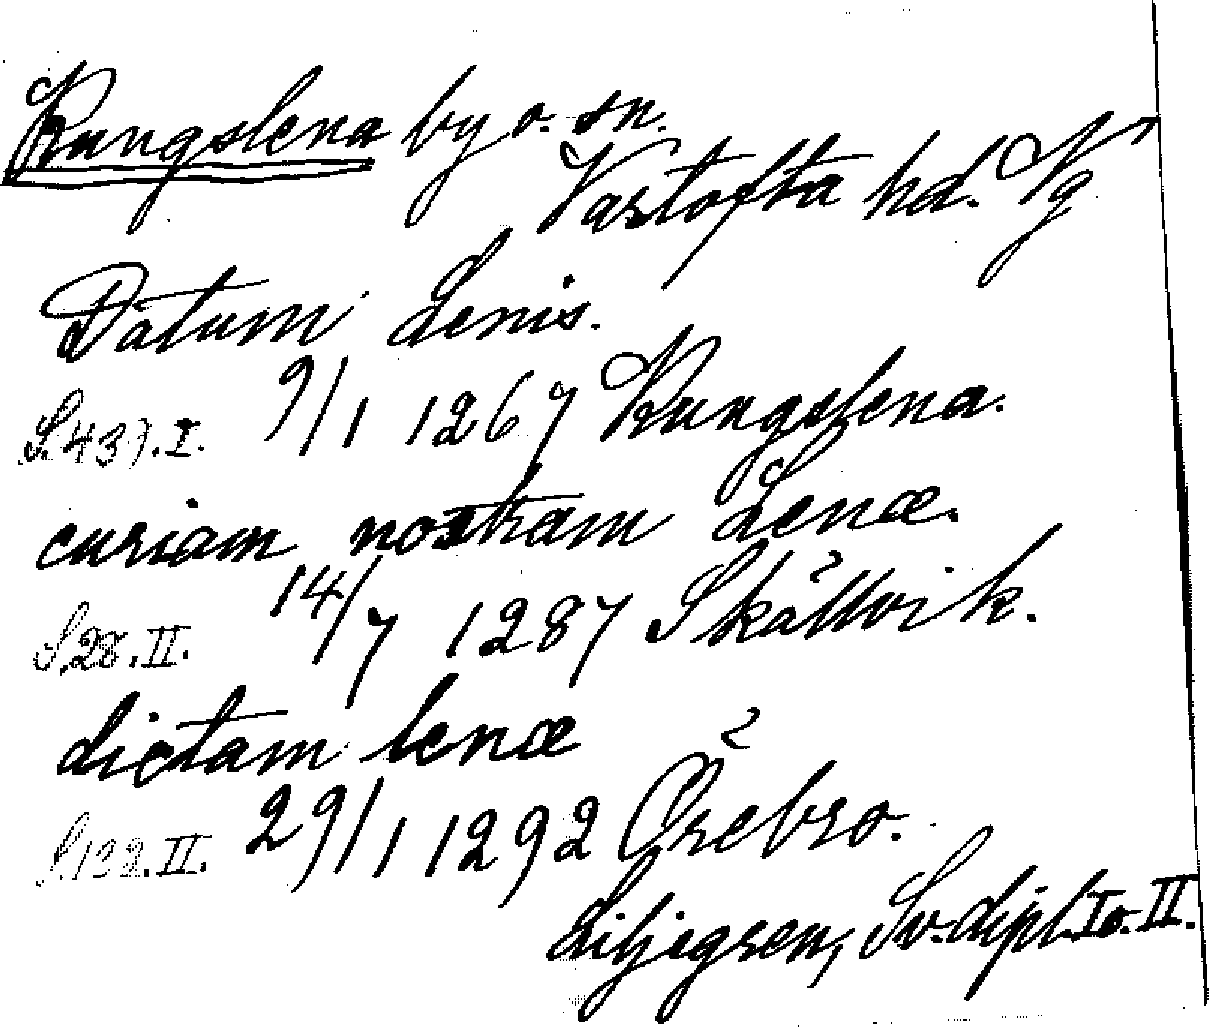 Kungslena by o. sn.
Vartofta hd. Vg
Datum Lenis.
S. 437. I. 9/1 1267 Kungslena.
curiam nostram Lenæ.
S. 28. II. 14/7 1287 Skällvik.
dictam lenæ
S. 132. II. 29/1 1292 Örebro.
Liljegren, Sv. dipl. I o. II.